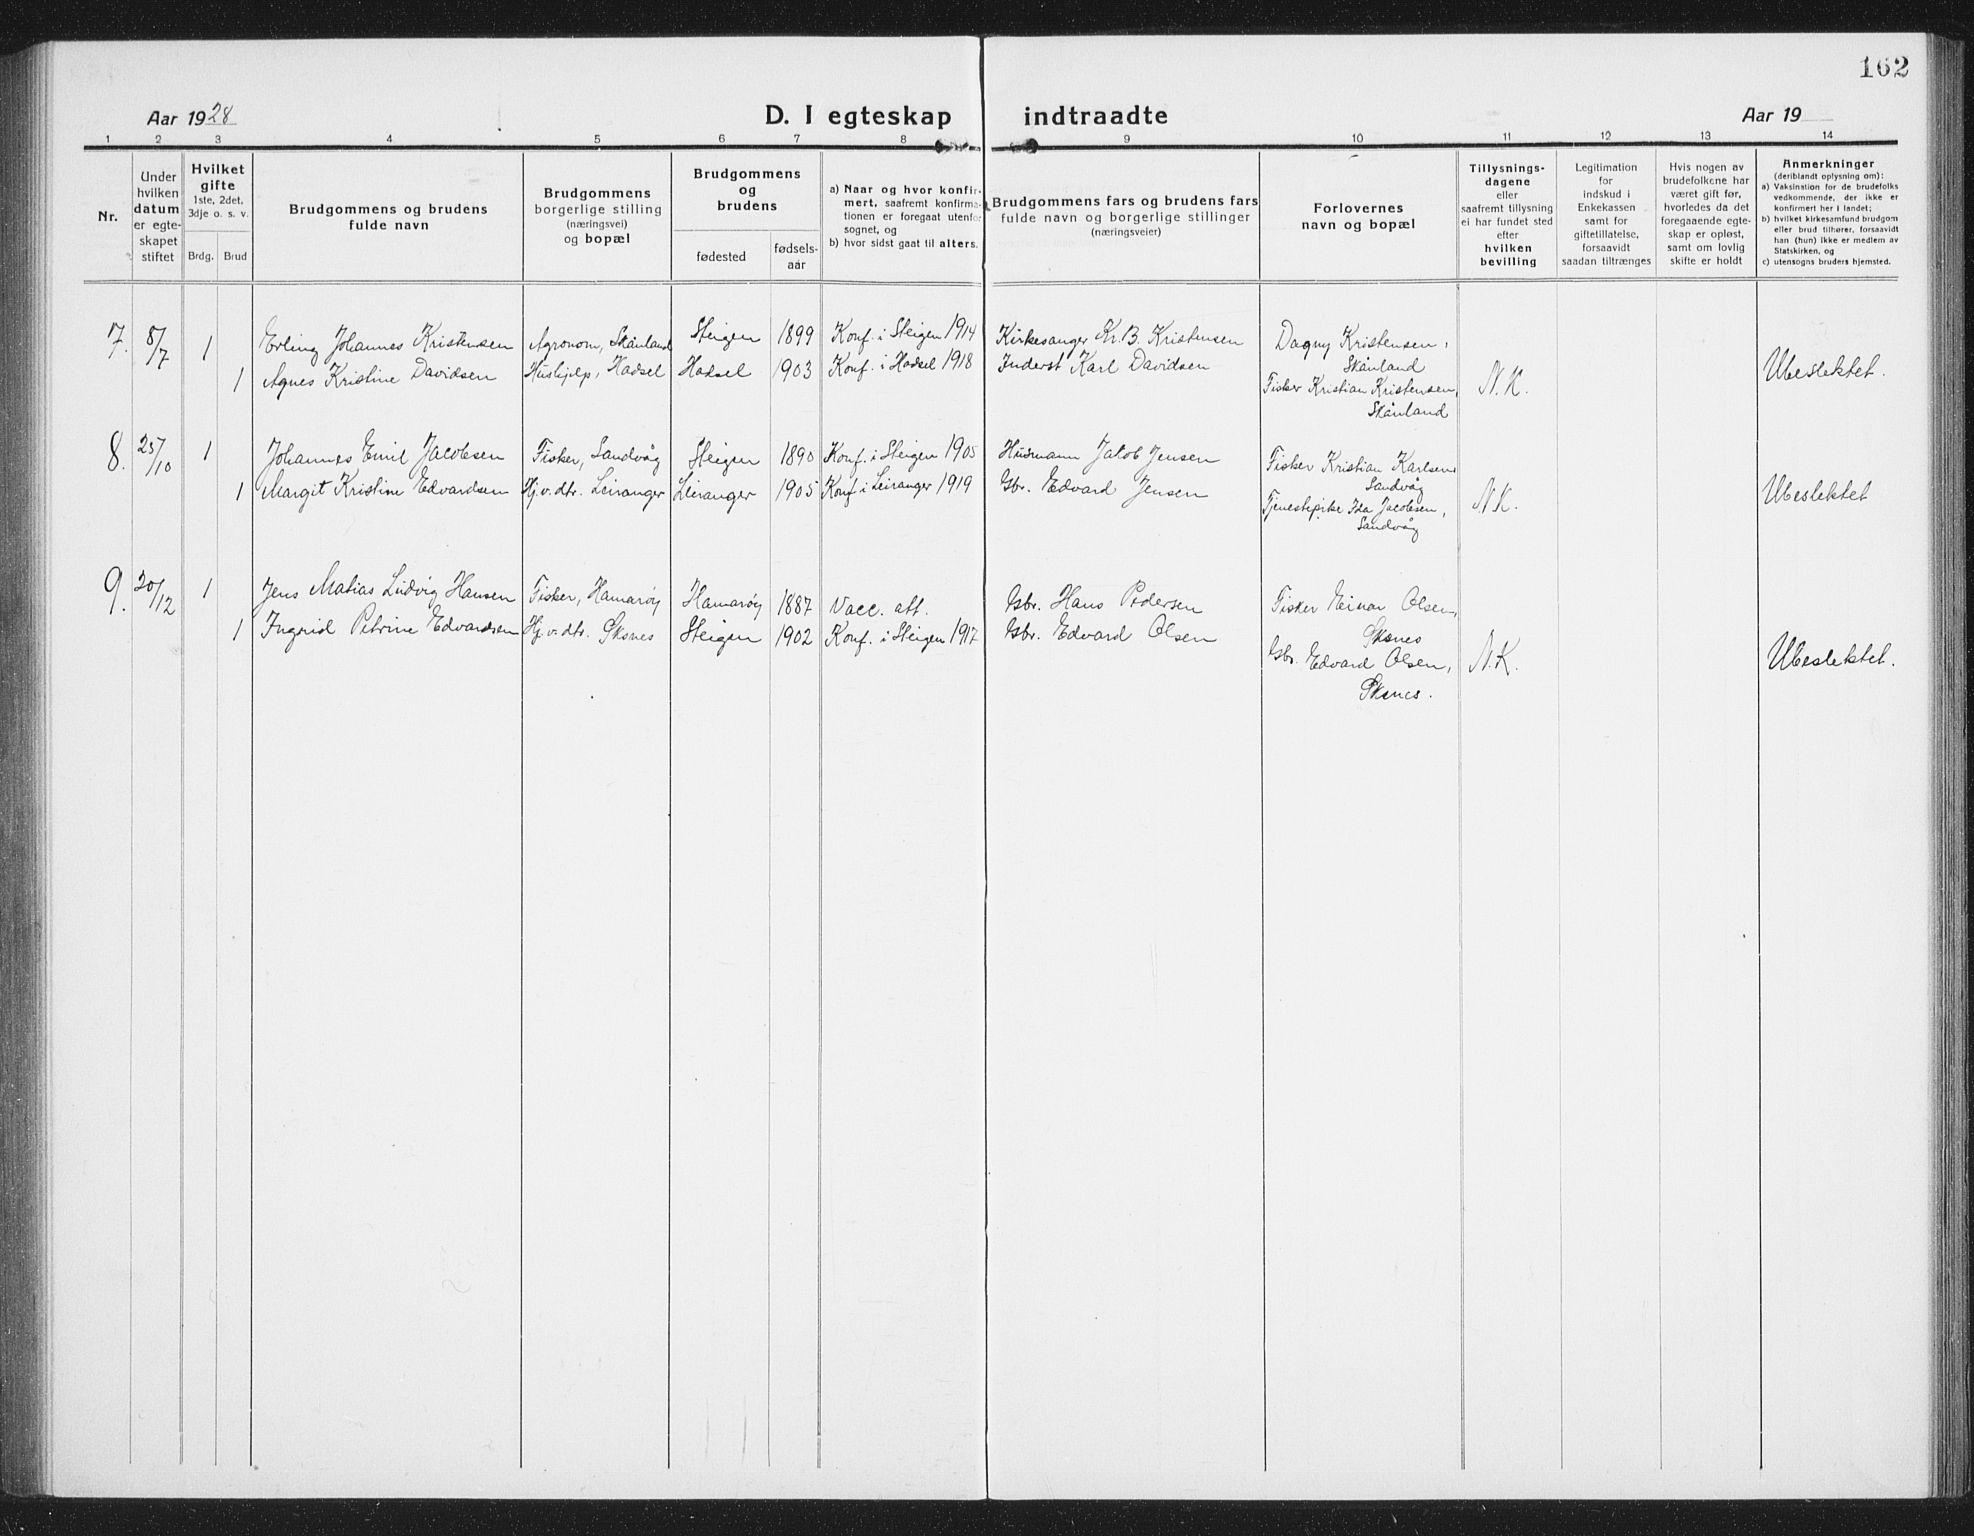 162
Aar 1928
D. I egteskap indtraadte
Aar 19
1 2 3 4 5 6 7 8 9 10 11 12 13 14
Nr.
Under
hvilken
datum
er egte-
skapet
stiftet
Hvilket
gifte
1ste, 2det,
3dje o. s. v.
Brdg. Brud
Brudgommens og brudens
fulde navn
Brudgommens
borgerlige stilling
(næringsvei)
og bopæl
Brudgommens
og
brudens
fødested
fødsels-
aar
a) Naar og hvor konfir-
mert, saafremt konfirma-
tionen er foregaat utenfor
sognet, og
b) hvor sidst gaat til alters.
Brudgommens fars og brudens fars
fulde navn og borgerlige stillinger
(næringsveier)
Forlovernes
navn og bopæl
Tillysnings-
dagene
eller
saafremt tillysning
ei har fundet sted
efter
hvilken
bevilling
Legitimation
for
indskud i
Enkekassen
samt for
giftetillatelse,
forsaavidt
saadan tiltrænges
Hvis nogen av
brudefolkene har
været gift før,
hvorledes da det
foregaaende egte-
skap er opløst,
samt om lovlig
skifte er holdt
Anmerkninger
(deriblandt oplysning om):
a) Vaksination for de brudefolks
vedkommende, der ikke er
konfirmert her i landet;
b) hvilket kirkesamfund brudgom
eller brud tilhører, forsaavidt
han (hun) ikke er medlem av
Statskirken, og
c) utensogns bruders hjemsted.
7. 8/7 1 Erling Johannes Kristensen Agronom, Skånland Steigen 1899 Konf. i Steigen 1914 Kirkesanger Kr. B. Kristensen Dagny Kristensen,
Skånland
1 Agnes Kristine Davidsen Hushjelp, Hadsel Hadsel 1903 Konf. i Hadsel 1918 Inderst Karl Davidsen
Fisker Kristian Kristensen, N.K. Ubeslektet.
Skånland
8. 25/10 1 Johannes Emil Jacobsen Fisker, Sandvåg Steigen 1890 Konf. i Steigen 1905 Husmann Jakob Jensen Fisker Kristian Karlsen
Sandvåg
1 Margit Kristine Edvardsen Hj.v.dtr. Leiranger Leiranger 1905 Konf i Leiranger 1919 Gbr. Edvard Jensen
Tjenestepike Ida Jacobsen, N.K. Ubeslektet
Sandvåg
9. 20/12 1 Jens Matias Ludvig Hansen Fisker, Hamarøy Hamarøy 1887 Vacc. att. Gbr. Hans Pedersen Fisker Einar Olsen,
Skånes
1 Ingrid Petrine Edvardsen Hj.v.dtr. Skånes Steigen 1902 Konf. i Steigen 1917 Gbr. Edvard Olsen
Gbr. Edvard Olsen, N.K. Ubeslektet.